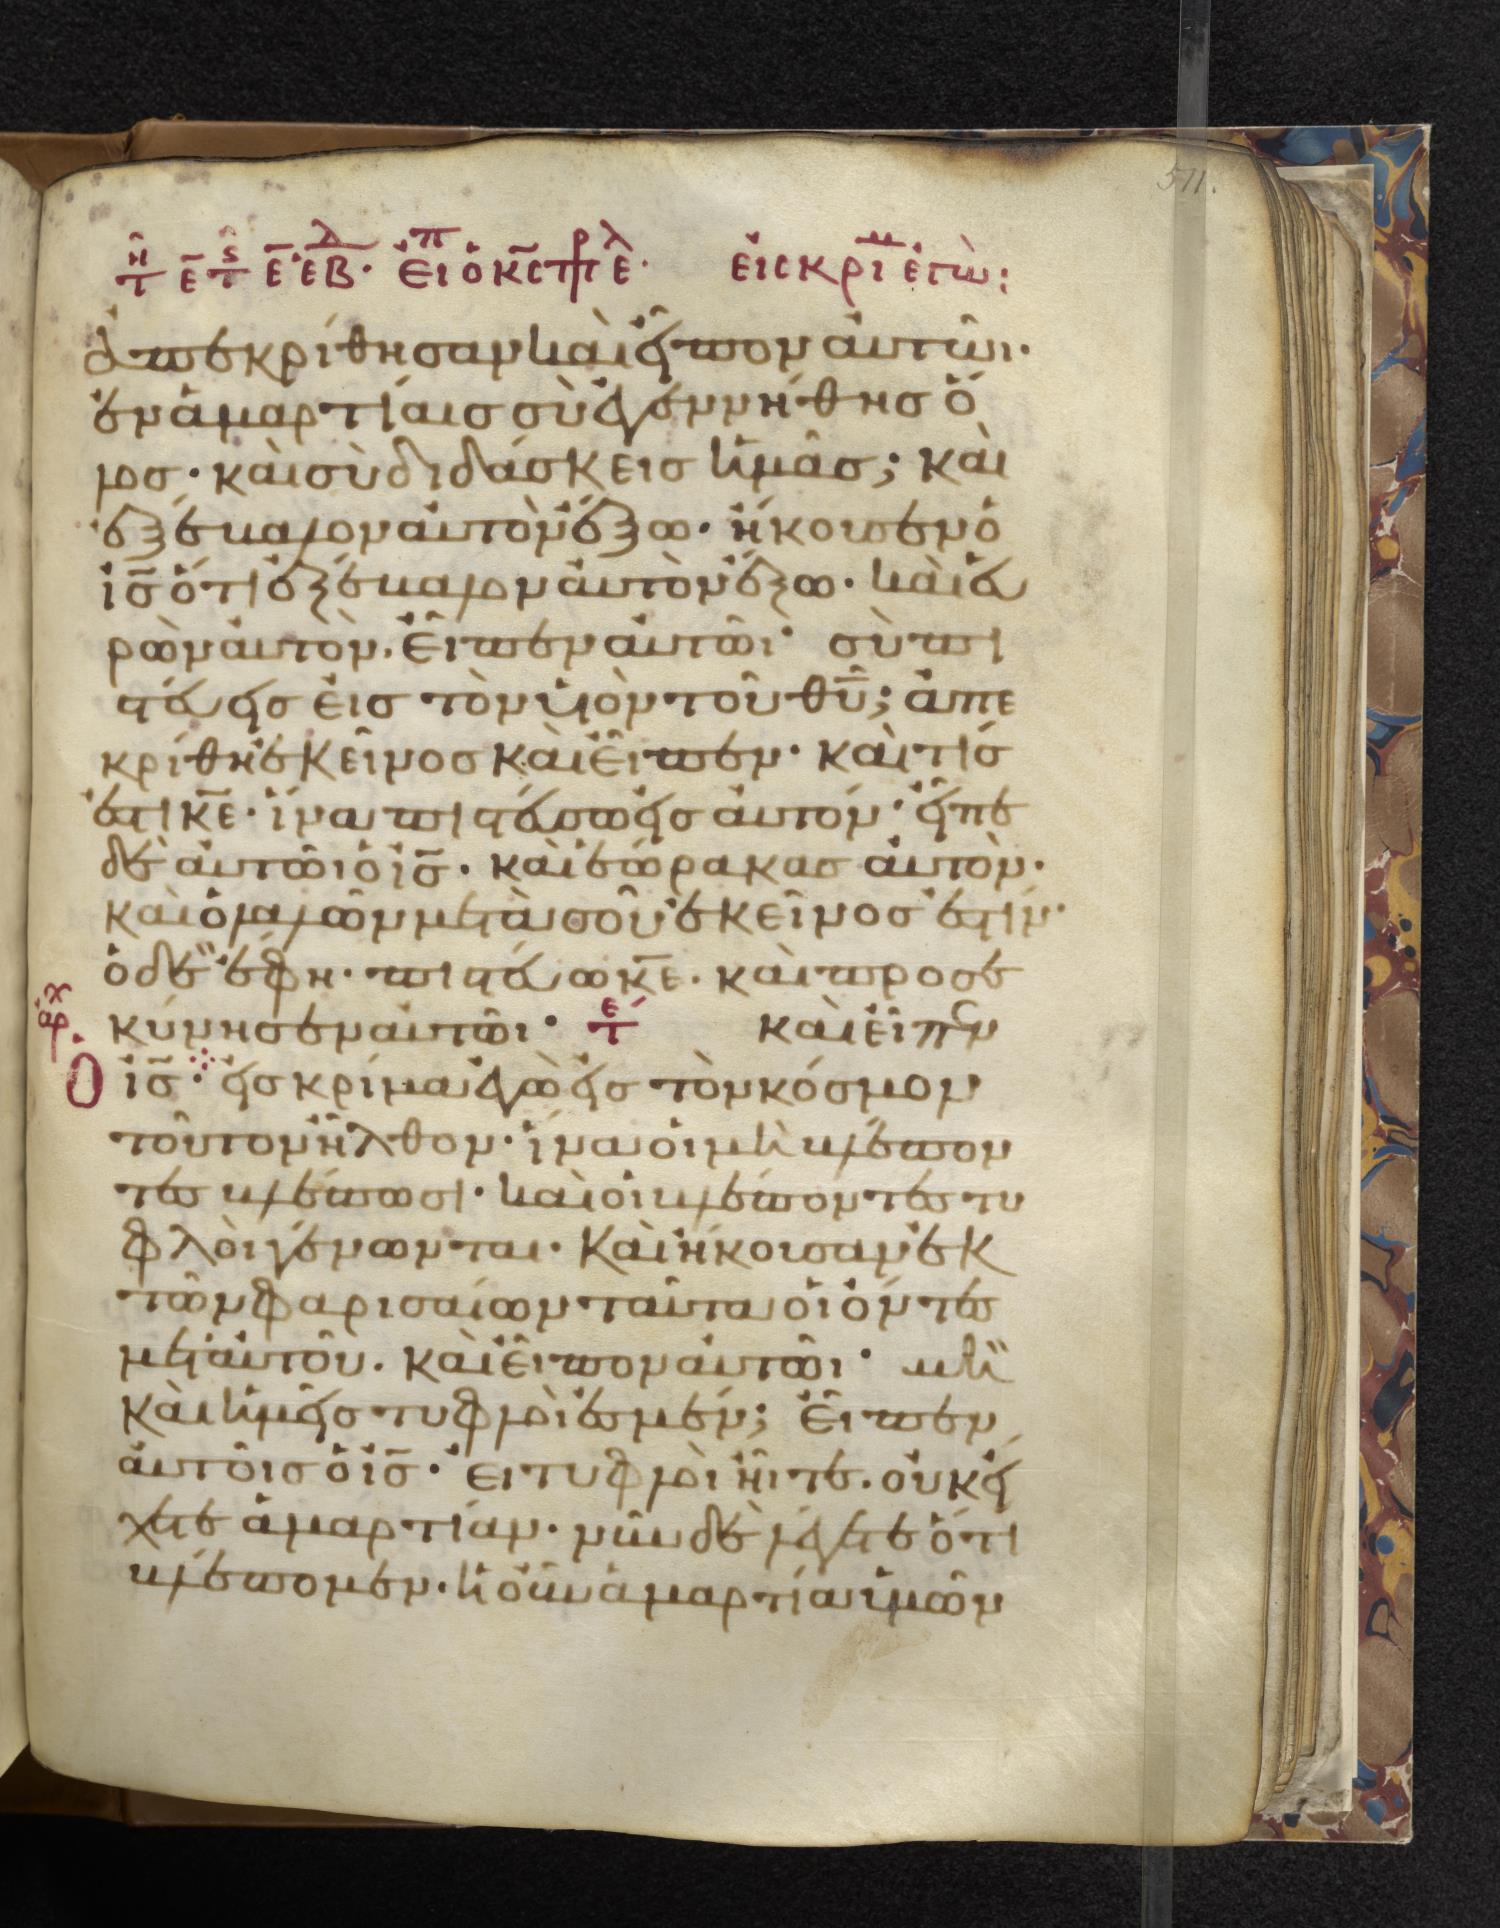 ἀπεκρίθησαν καὶ εἶπον αὐτῶι·
ἐν ἁμαρτίαις σὺ ἐγεννήθης ὅ
λος· καὶ σὺ διδάσκεις ἡμᾶς; καὶ
ἐξέβαλον αὐτὸν ἔξω· ἤκουσεν ὁ
ἰς̅ ὅτι ἐξέβαλον αὐτὸν ἔξω· καὶ εὑ
ρὼν αὐτὸν, εἶπεν αὐτῶι· σὺ πι
στεύεις εἰς τὸν υἱὸν τοῦ θῦ̅; ἀπε
κρίθη ἐκεῖνος καὶ εἶπεν· καὶ τίς
ἐστι κε̅· ἵνα πιστεύσω εἰς αὐτόν· εἶπε
δὲ αὐτῶι ὁ ἰς̅· καὶ ἑώρακας αὐτὸν·
καὶ ὁ λαλῶν μετὰ σοῦ ἐκεῖνος ἐστίν·
ὁ δὲ ἔφη· πιστεύω κε̅· καὶ προσε
κύνησεν αὐτῶι· καὶ εἶπεν
Ὁ ἰς̅· εἰς κρίμα ἐγὼ εἰς τὸν κόσμον
τοῦτον ἦλθον· ἵνα οἱ μὴ βλέπον
τες βλέπωσι· καὶ οἱ βλέποντες τυ
φλοὶ γένωνται· καὶ ἤκουσαν ἐκ
τῶν φαρισαίων ταῦτα οἱ ὄντες
μετ' αὐτοῦ. καὶ εἶπον αὐτῶι· μὴ
καὶ ἡμεῖς τυφλοὶ ἐσμέν; εἶπεν
αὐτοῖς ὁ ἰς̅· εἰ τυφλοὶ ἦιτε. οὐκ εἴ
χετε ἁμαρτίαν· νῦν δὲ λέγετε ὅτι
βλέπομεν· ἡ οὖν ἁμαρτία ὑμῶν